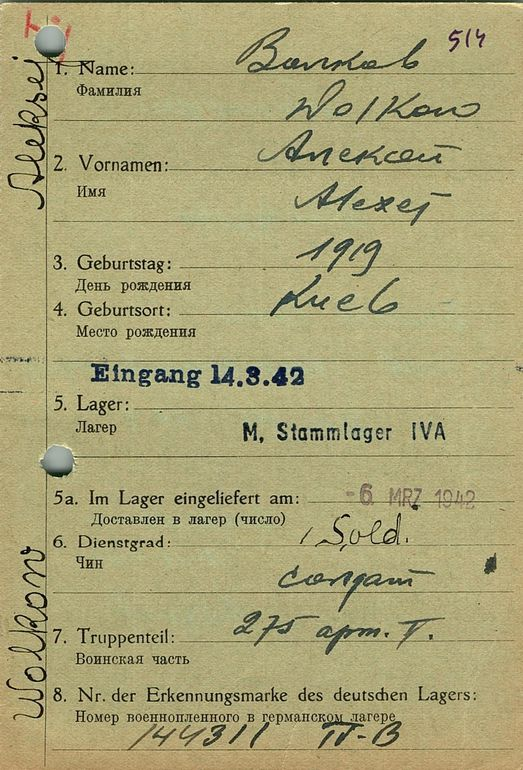 514
1. Name: Волков
Фамилия
Wolkow
2. Vornamen: Алексей
Имя
Alexej
3. Geburtstag: 1919
День рождения
4. Geburtsort: Киев
Место рождения
Eingang 14.3.42
5. Lager:
Лагер
M. Stammlager IVA
5a. Im Lager eingeliefert am: -6. MRZ. 1942
Доставлен в лагер (число)
6. Dienstgrad: Sold.
Чин
солдат
7. Truppenteil: 275 арт. п.
Воинская часть
8. Nr. der Erkennungsmarke des deutschen Lagers:
Номер военнопленного в германском лагере
144311 IV-B
Wolkow Aleksej